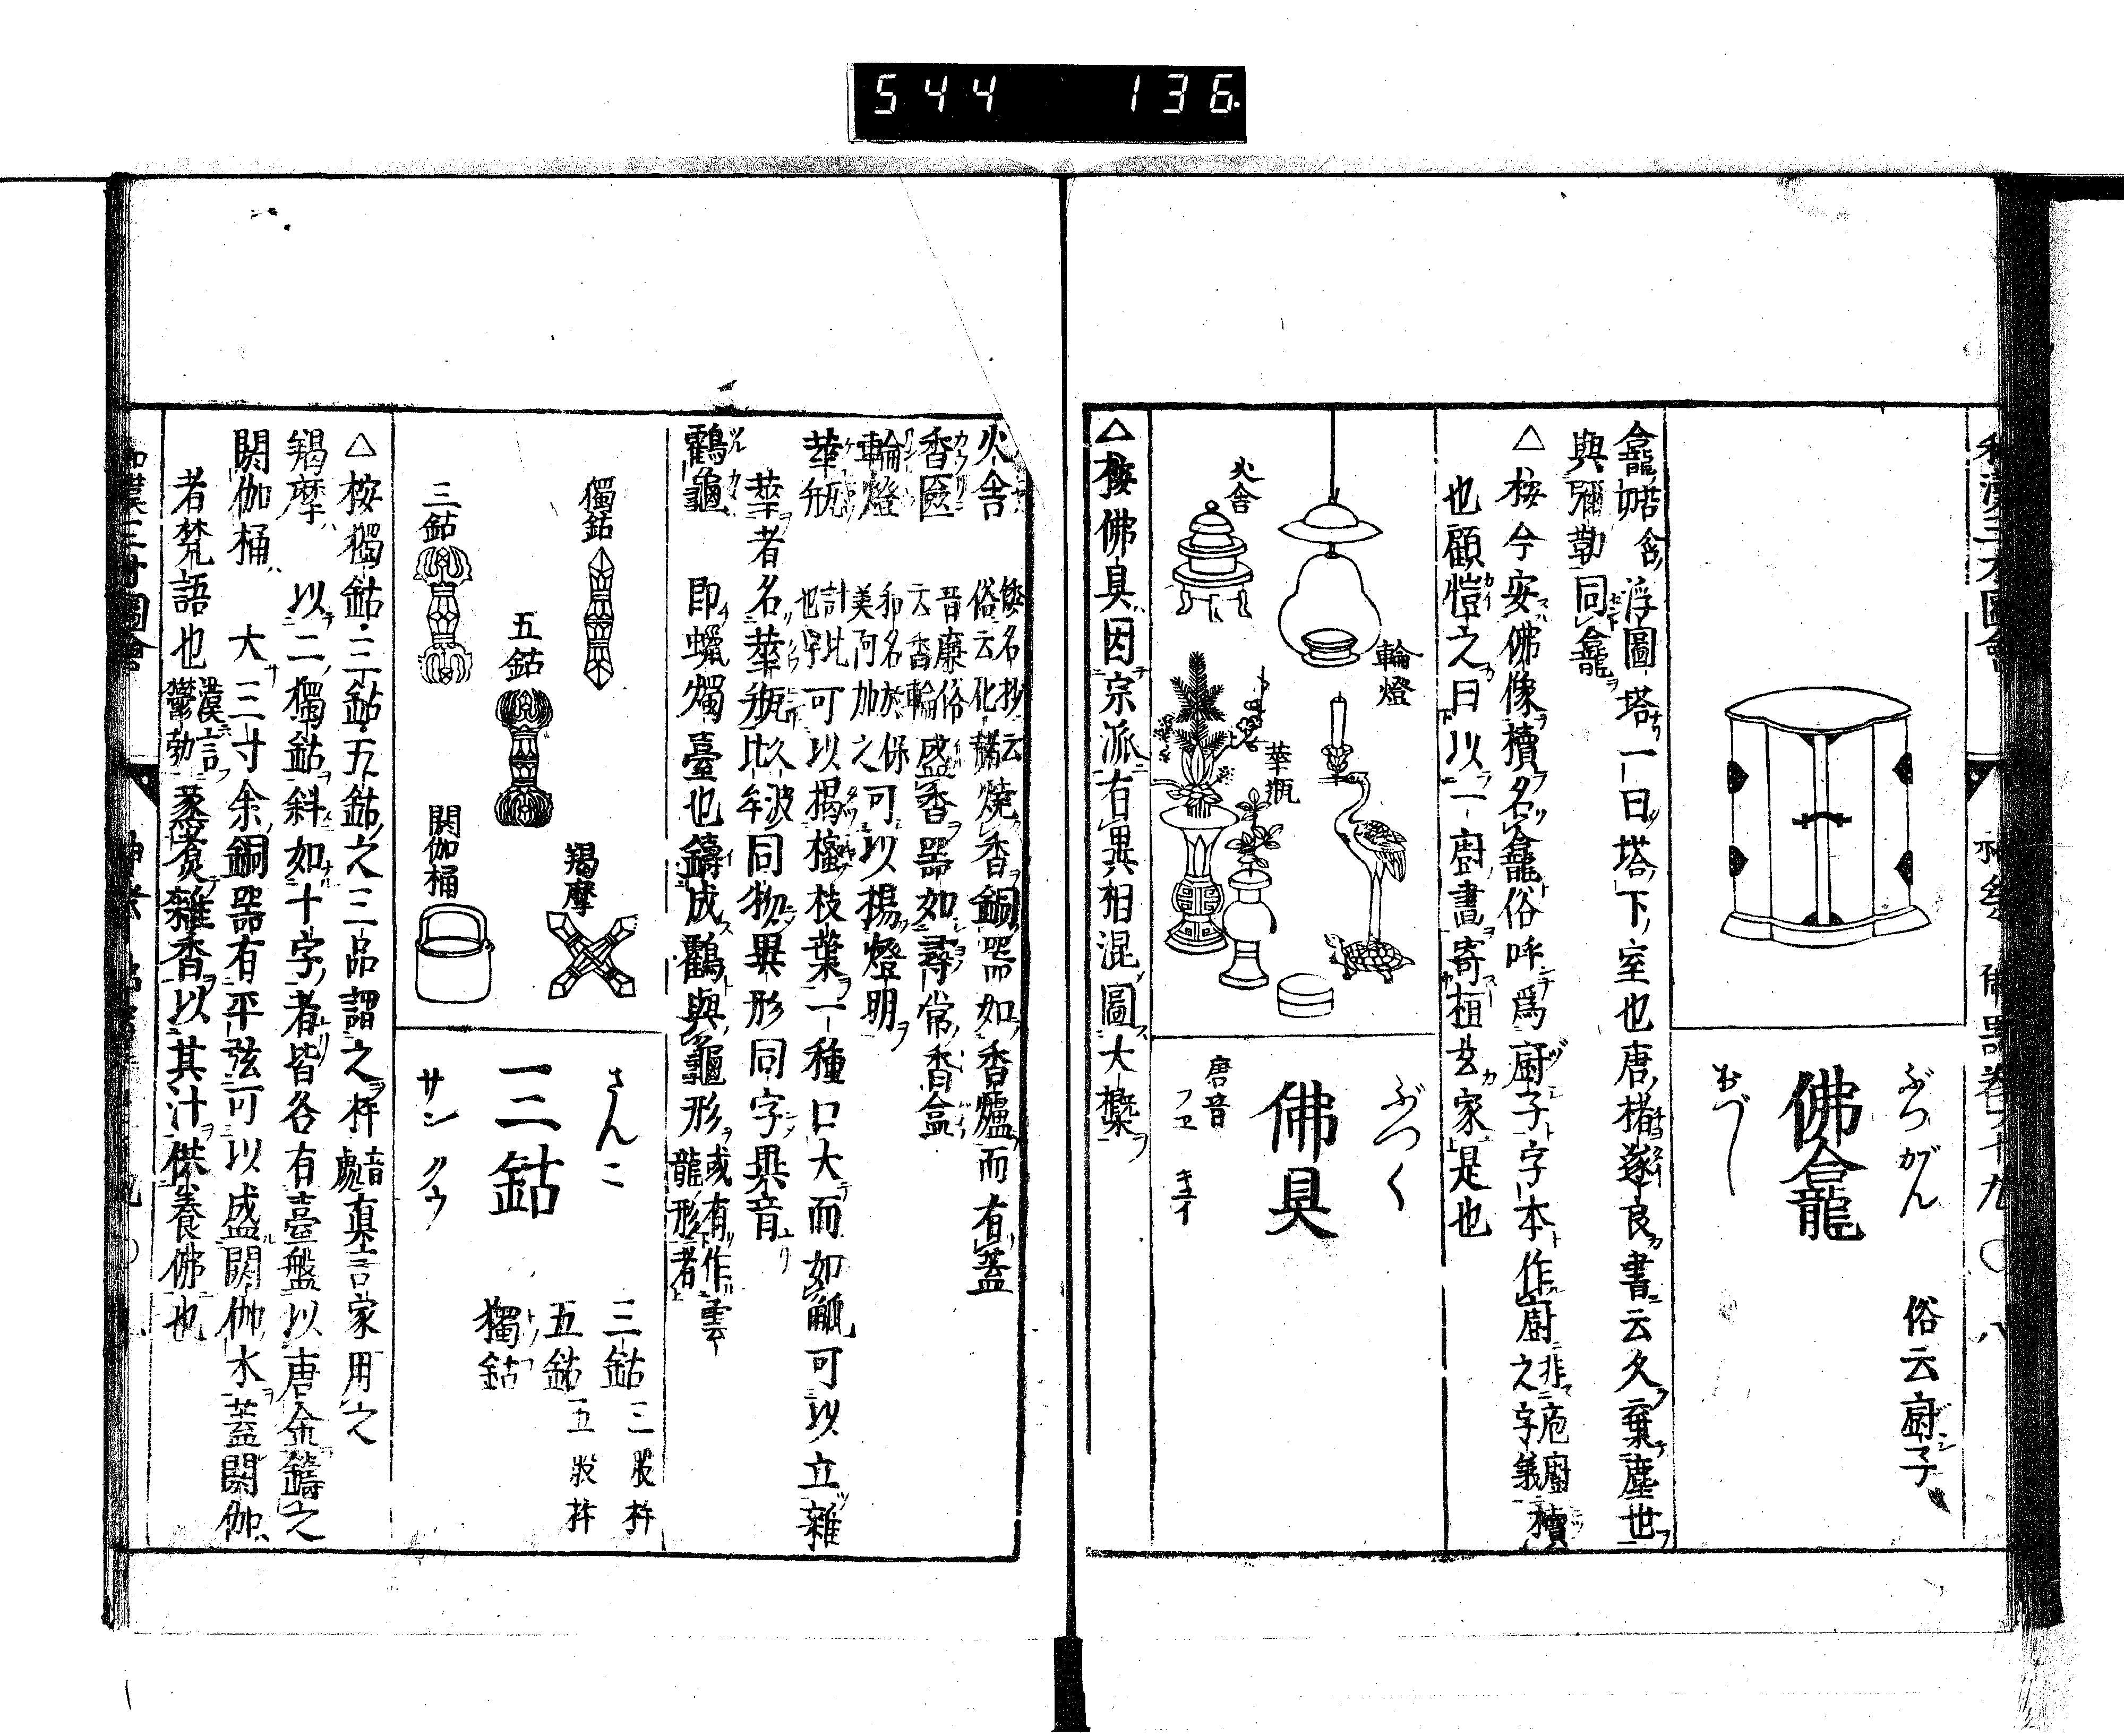 544 136
和漢三才圖會 神祭 佛噐 卷ノ十九 〇 八
ぶつがん
佛龕
おづし
俗云廚子
龕 塔 浮圖塔一曰塔下室也唐褚遂良書云久棄塵世
與彌勒同龕
△按今安佛像櫝名龕俗呼爲廚子字本作廚 非庖廚之字義 櫝
也顧愷之曰以一廚畫寄桓玄家是也
火舎
輪燈
華瓶
ぶつく
佛具
唐音
フヱ キユイ
△按佛具因宗派有異相混圖大槩
火舎 倭名抄云 俗云化赭 燒香銅噐如香爐而有蓋
香匳 晋庾俗 云香輪 盛香噐如尋常香盒
輪燈 和名於保 美阿加之 可以揚燈明
華瓶 計比 也宇 可以揭樒枝葉一種口大而如觚可以立雜
華者名華瓶 久波 比牟 同物異形同字異音
鶴龜 即蠟燭臺也鑄成鸛與龜形 或有作雲 龍形者
獨鈷
三鈷
五鈷
羯摩
閼伽桶
さんこ
三鈷
サン クウ
三鈷 三股杵
五鈷 五股杵
獨鈷
△按獨鈷三鈷五鈷之三品謂之杵 音處 眞言家用之
羯摩 以二獨鈷斜如十字者皆各有臺盤以唐金鑄之
閼伽桶 大三寸余銅噐有平弦可以盛閼伽水蓋閼伽
者梵語也 漢言 鬱勃 蒸煑雜香以其汁供養佛也